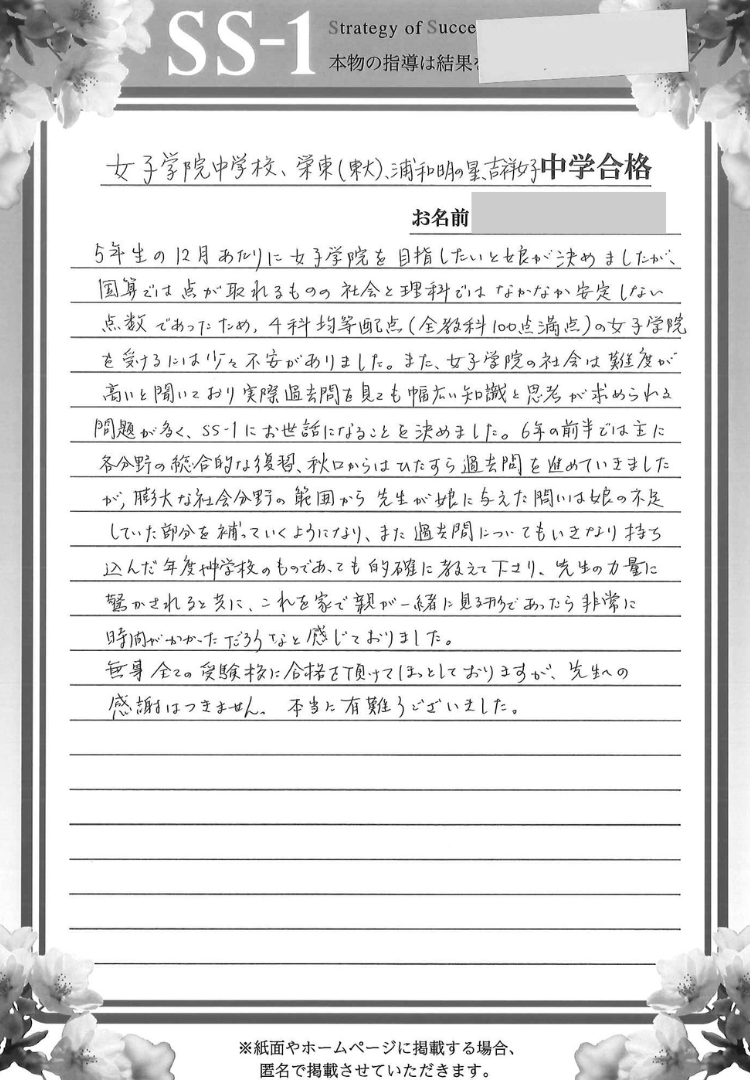 SS-1
Strategy of Succe
本物の指導は結果
女子学院中学校、栄東(東大)、浦和明の星、吉祥女子中学合格
お名前
5年生の12月あたりに女子学院を目指したいと娘が決めましたが、
国算では点が取れるものの社会と理科ではなかなか安定しない
点数であったため、4科均等配点(全教科100点満点)の女子学院
を受けるには少々不安がありました。また、女子学院の社会は難度が
高いと聞いており実際過去問を見ても幅広い知識と思考が求められる
問題が多く、SS-1にお世話になることを決めました。6年の前半では主に
各分野の総合的な復習、秋口からはひたすら過去問を進めていきました
が、膨大な社会分野の範囲から先生が娘に与えた問いは娘の不足
していた部分を補っていくようになり、また過去問についてもいきなり持ち
込んだ年度や学校のものであっても的確に教えて下さり、先生の力量に
驚かされると共に、これを家で親が一緒に見る形であったら非常に
時間がかかっただろうなと感じておりました。
無事全ての受験校に合格を頂けてほっとしておりますが、先生への
感謝はつきません。本当に有難うございました。
※紙面やホームページに掲載する場合、
匿名で掲載させていただきます。